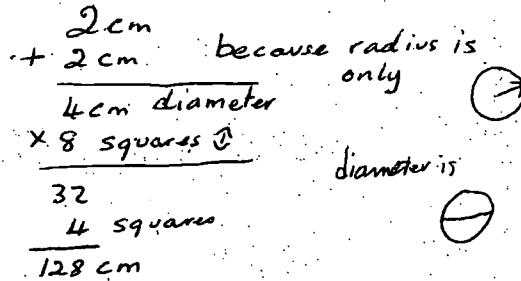 2cm
+ 2cm
because radius is
only
4cm diameter
× 8 squares ⇕
diameter is
32
4 squares
128 cm